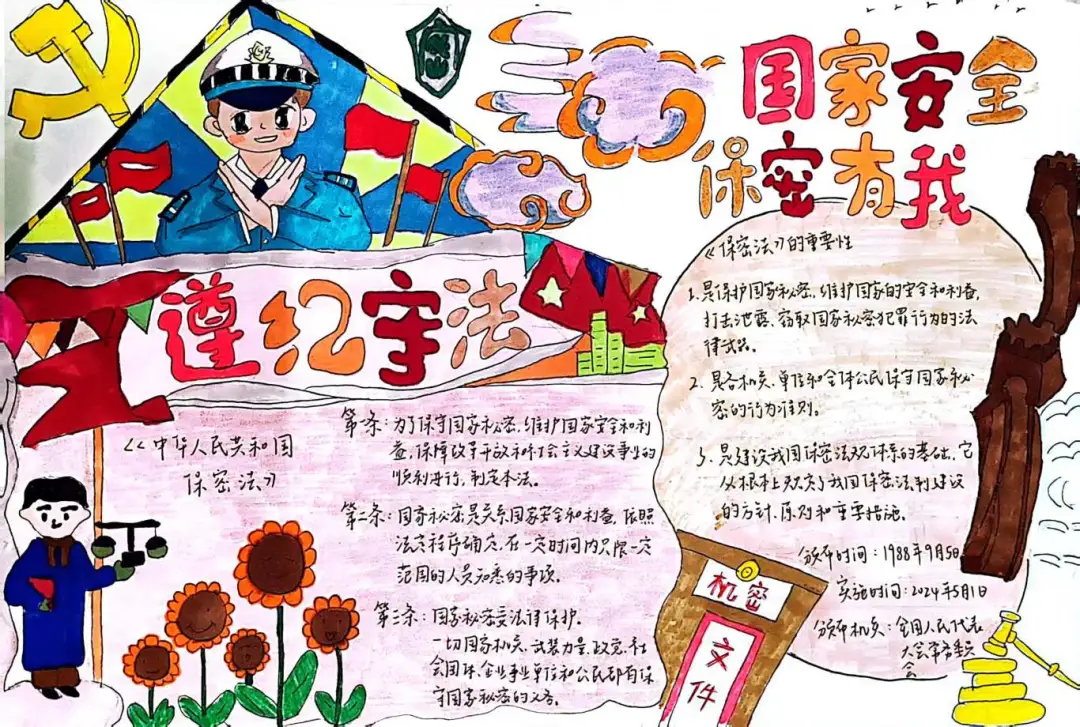 国家安全
保密有我
遵纪守法
《中华人民共和国
保密法》
第一条:为了保守国家秘密,维护国家安全和利
益,保障改革开放和社会主义建设事业的
顺利进行,制定本法。
第二条:国家秘密是关系国家安全和利益,依照
法定程序确定,在一定时间内只限一定
范围的人员知悉的事项。
第三条:国家秘密受法律保护。
一切国家机关、武装力量、政党、社
会团体、企业事业单位和公民都有保
守国家秘密的义务。
《保密法》的重要性
1.是保护国家秘密,维护国家的安全和利益,
打击泄露、窃取国家秘密犯罪行为的法
律武器。
2.是各机关、单位和全体公民保守国家秘
密的行为准则。
3.是建设我国保密法规体系的基础,它
从根本上规定了我国保密法制建设
的方针、原则和重要措施。
颁布时间:1988年9月5日
实施时间:2024年5月1日
颁布机关:全国人民代表
大会常务委员
会
机密
文件